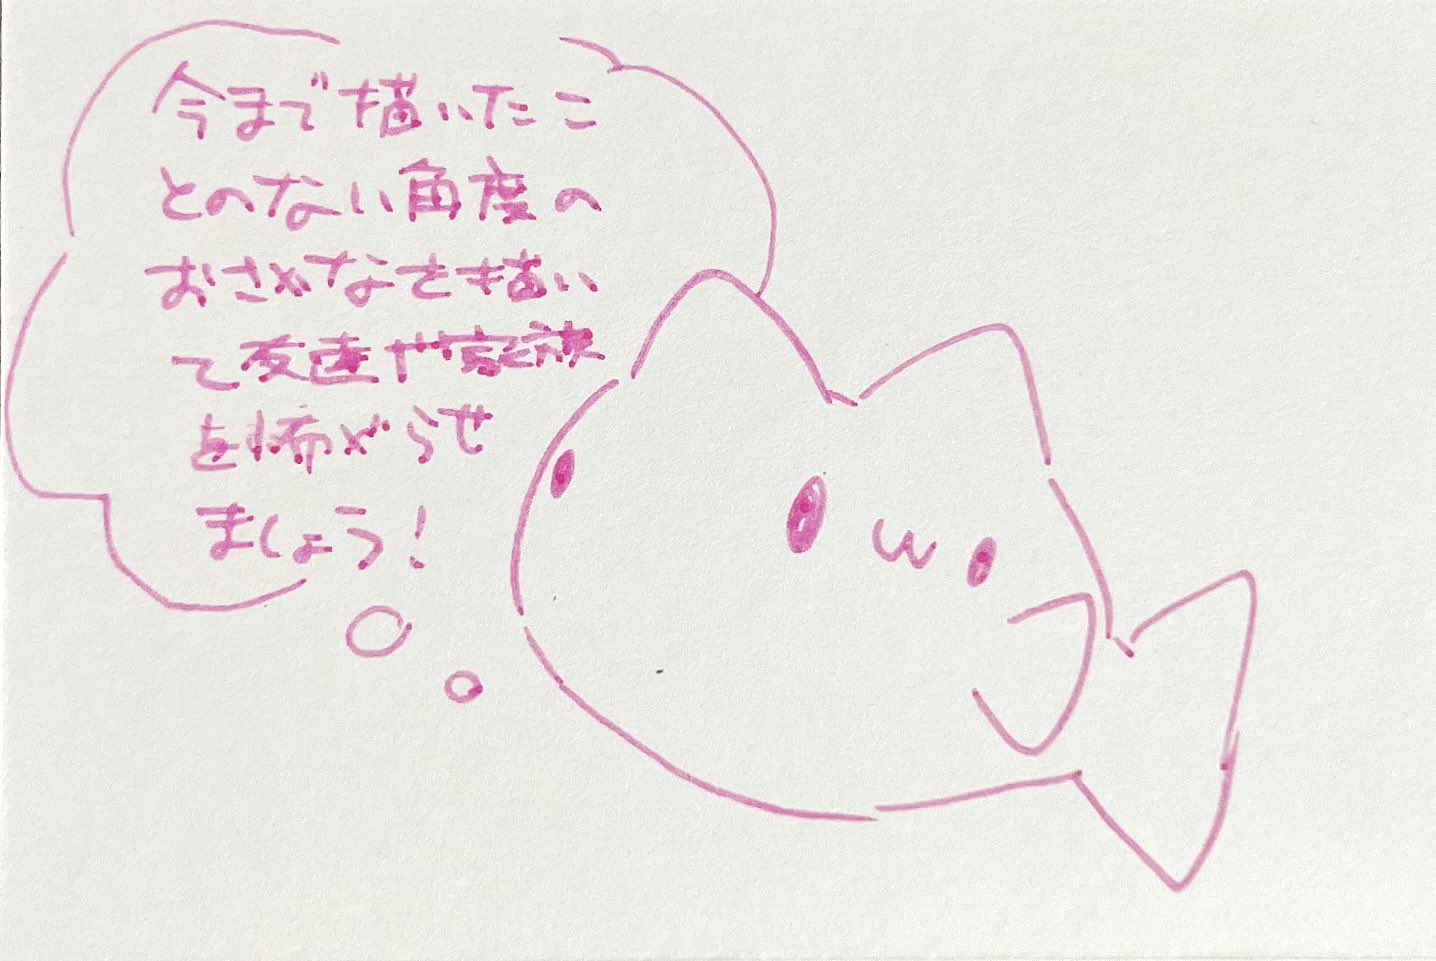 今まで描いたこ
とのない角度の
おさかなを描い
て友達や家族
を怖がらせ
ましょう!